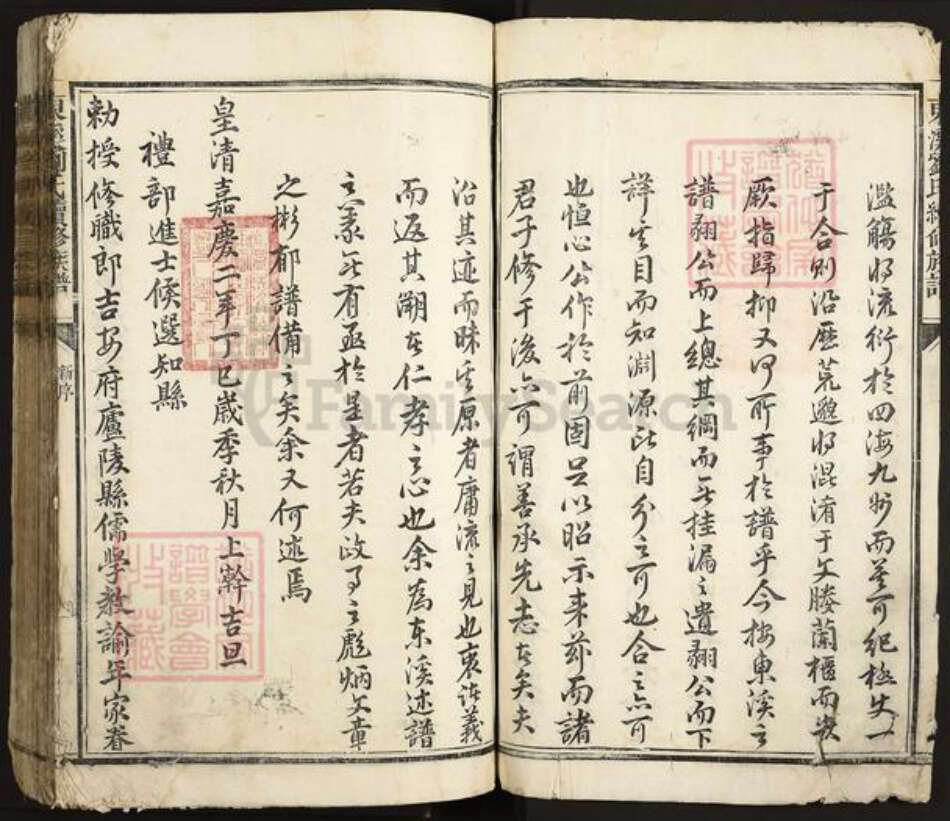 濫觴將流衍於四海九州而莫可紀極失一
于合則沿歷荒邈將混淆于文媵蘭櫃而
厥指歸抑又何所事於譜乎今按東溪之
譜翱公而上總其綱而無掛漏之遺翱公而下
詳其目而知淵源所自分之可也合之亦可
也恒心公作於前固足以昭示來茲而諸
君子修于後亦可謂善承先志者矣夫
沿其迹而昧其原者庸流之見也衷諸義
而返其朔者仁孝之心也余為東溪述譜
之家所有亟於是者若夫政事之彪炳文章
之彬郁譜備之矣余又何述焉
皇清嘉慶二年丁巳歲季秋月上澣吉旦
禮部進士候選知縣
勅授修職郎吉安府廬陵縣儒學教諭年家眷
東溪劉氏續修族譜
新序
東溪劉氏續修族譜
譜學會
收藏
FamilySearch